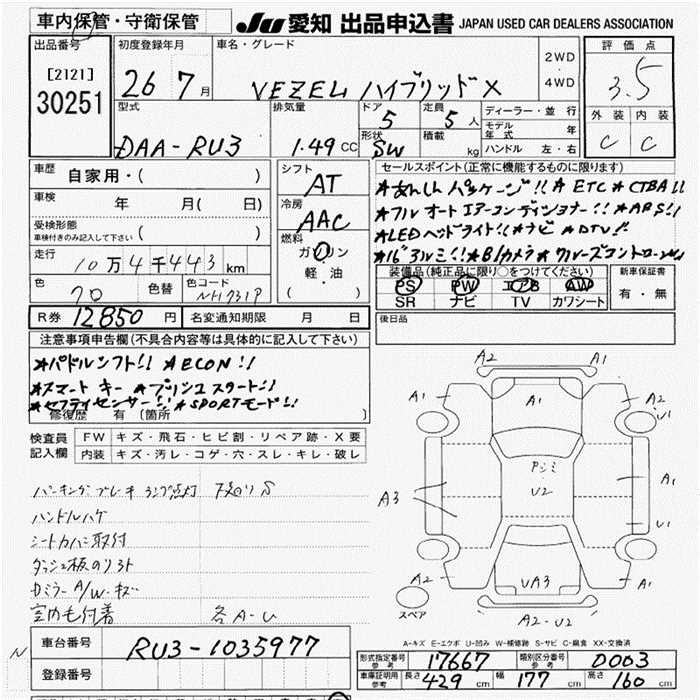 車内保管・守衛保管
JU 愛知 出品申込書 JAPAN USED CAR DEALERS ASSOCIATION
出品番号 初度登録年月 車名・グレード 2WD 評価点
[2121] 30251 26 7月 VEZEL ハイブリッド X 4WD 3.5
型式 排気量 ドア 定員 ディーラー・並行 外装 内装
DAA-RU3 1.49 CC 5 5人 モデル年式 年 C C
形状 SW 積載 kg ハンドル 左・右
車歴 自家用・( ) シフト AT セールスポイント(正常に機能するものに限ります)
車検 年 月( 日) 冷房 AAC
★あんしんパッケージ!! ★ETC ★CTBA!!
★フルオートエアーコンディショナー!! ★ABS!!
受検形態 車検付きのみ記入して下さい( )
★LEDヘッドライト!! ★ナビ ★DTV!!
燃料 ガソリン 軽・油 ( )
★16アルミ!! ★Bカメラ ★クルーズコントロール
走行 10万4千443km
装備品(純正品に限り○をつけてください) 新車保証書
色 色替 色コード
70 NH731P
PS PW エアB AW 有・無
SR ナビ TV カワシート
R券 12850円 名変通知期限 月 日 後日品
注意事項申告欄(不具合内容等は具体的に記入して下さい)
★パドルシフト!! ★ECON!!
★スマートキー ★プッシュスタート!!
★セーフティセンサー!! ★SPORTモード!!
修復歴 有 〔箇所 〕
検査員記入欄 FW キズ・飛石・ヒビ割・リペア跡・X要
内装 キズ・汚レ・コゲ・穴・スレ・キレ・破レ
パーキングブレーキランプ点灯
ハンドルハゲ
シートカバー取付
ダッシュ板のり
ミラー A/W キズ
室内毛付着 各A-U
A2 A1
A1 A1 A2 U1
Pシミ U2
A3 A1
U1
A2 UA3 A1
スペア A2-U2
A-キズ E-エクボ U-凹み W-補修跡 S-サビ C-腐食 XX-交換済
N 車台番号 RU3-1035977
形式指定番号 参考 17667 類別区分番号 参考 D003
登録番号 車庫証明用 参考 長さ 429cm 幅 177cm 高さ 160cm